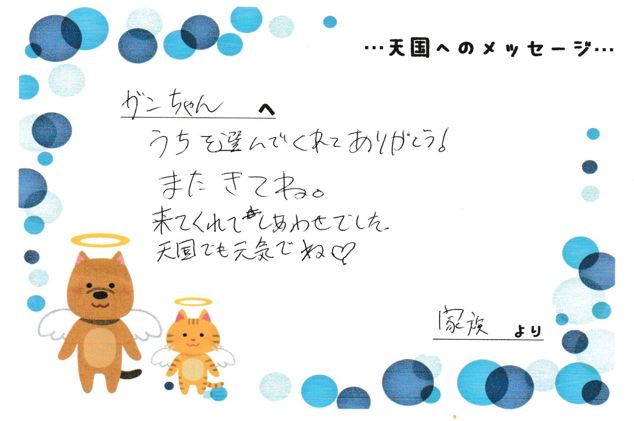 …天国へのメッセージ…
ガンちゃん へ
うちを選んでくれてありがとう!
またきてね。
来てくれてしあわせでした。
天国でも元気でね♡
家族 より